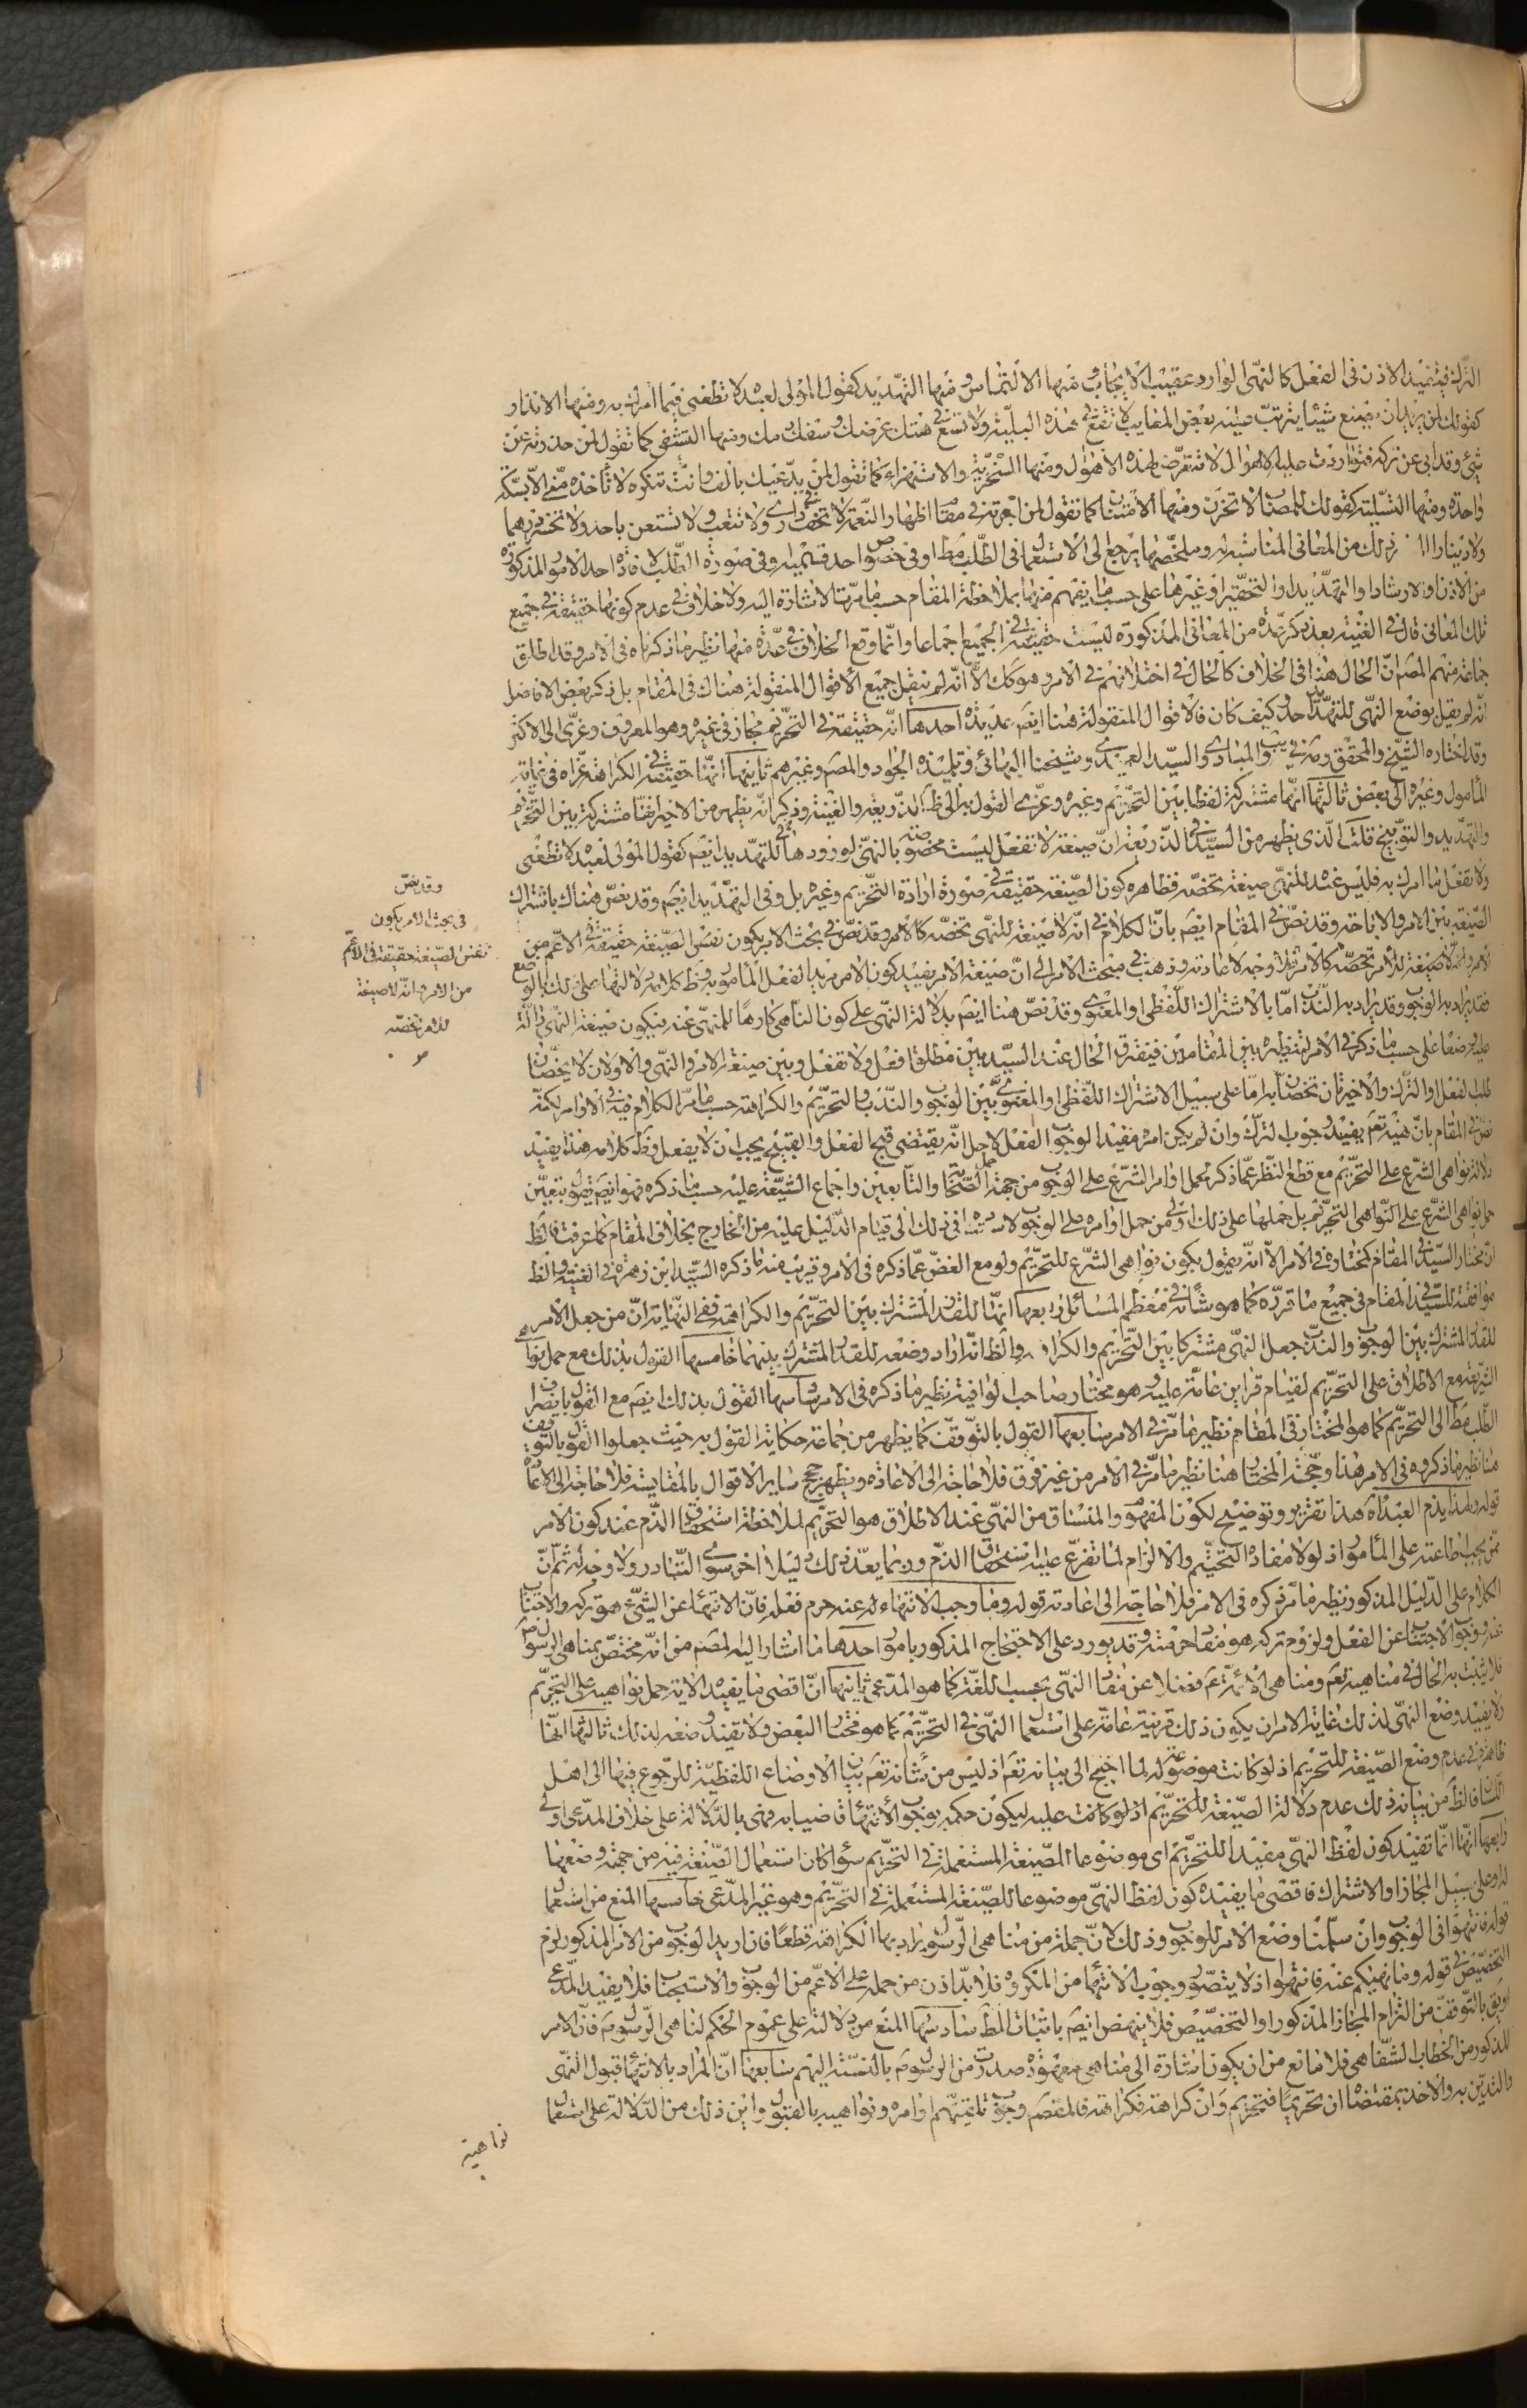 الترك فيفيد الاذن فى الفعل كالنهى الوارد عقيب الايجاب ومنها الالتماس ومنها التهديد كقول المولى لعبده لا تطعنى فيما امرك به ومنها الانذار
كقولك لمن يريد ان يصنع شيئا يترتب عليه بعض المصايب لا تقع فى هذه البلية ولا تسع فى هتك عرضك وسفك دمك ومنها التشفى كما تقول لمن حذرته عن
شئ وقد ابى عن تركه فتواردت عليه الاهوال لا تتعرض لهذه الاهوال ومنها السخرية والاستهزاء كما تقول لمن يدعيك بالف وانت تنكره لا تأخذه منى الا بسكة
واحدة ومنها التسلية كقولك للمصاب لا تحزن ومنها الامتنان كما تقول لمن اجرته فى مقام اظهار النعمة لا تخف فى دارى ولا تتعب ولا تستعن باحد ولا تخسر درهما
ولا دينارا الى غير ذلك من المعانى المناسبة له وملخصها يرجع الى الاستعمال فى الطلب مط او فى خصوص احد قسميه وفى صورة الطلب لافادة احد الامور المذكورة
من الاذن والارشاد او التهديد او التحقير او غيرها على حسب ما يفهم منها بملاحظة المقام حسب ما مرت الاشارة اليه ولا خلاف فى عدم كونها حقيقة فى جميع
تلك المعانى قال فى الغنية بعد ذكر عدة من المعانى المذكورة ليست حقيقة فى الجميع اجماعا وانما وقع الخلاف فى عدة منها نظير ما ذكرناه فى الامر وقد اطلق
جماعة منهم المصـ ان الحال هنا فى الخلاف كالحال فى اختلافهم فى الامر وهو كك الا انه لم ينقل جميع الاقوال المنقولة هناك فى المقام بل ذكر بعض الافاضل
انه لم يقل بوضع النهى للتهديد احد وكيف كان فالاقوال المنقولة هنا ايضـ عديدة احدها انه حقيقة فى التحريم مجاز فى غيره وهو المعروف وعزى الى الاكثر
وقد اختاره الشيخ والمحقق والعلامة فى يب والمبادى والسيد العميدى وشيخنا البهائى وتلميذه الجواد والمصـ وغيرهم ثانيها انها حقيقة فى الكراهة عزاه فى غاية
المأمول وغيره الى بعض ثالثها انها مشتركة لفظا بين التحريم وغيره وعزى القول به الى ظ الذريعة والغنية وذكر انه يظهر من الاخير انها مشتركة بين التحريم
والتهديد والتوبيخ قلت الذى يظهر من السيد فى الذريعة ان صيغة لا تفعل ليست مخصوصة بالنهى لورودها فى التهديد ايضـ كقول المولى لعبده لا تطعنى
ولا تفعل ما امرك به فليس عنده للنهى صيغة تخصه فظاهره كون الصيغة حقيقة فى صورة ارادة التحريم وغيره بل وفى التهديد ايضـ وقد نص هناك باشتراك
الصيغة بين الامر والاباحة وقد نص فى المقام ايضـ بان الكلام فى انه لا صيغة للنهى تخصه كالامر وقد نص فى بحث الامر بكون نفس الصيغة حقيقة فى الاعم من
الامر وانه لا صيغة للامر تخصه كالامر فلا وجه لاعادته وذهب فى مبحث الامر الى ان صيغة الامر يفيد كون الامر مريدا لفعل المأمور به وظ كلامه دلالتها على ذلك بالوضع
فقد يراد به الوجوب وقد يراد به الندب اما بالاشتراك اللفظى او المعنوى وقد نص هنا ايضـ بدلالة النهى على كون الناهى كارها للمنهى عنه فيكون صيغة النهى دالة
عليه وضعا على حسب ما ذكر فى الامر فيظهر بين المقامين فيفترق الحال عند السيد بين مطلق افعل ولا تفعل وبين صيغة الامر والنهى والاولان لا يخصان
طلب الفعل او الترك والاخيرتان تخصان به اما على سبيل الاشتراك اللفظى او المعنوى بين الوجوب والندب والتحريم والكراهة حسب ما مر الكلام فيه فى الاوامر لكنه
نص فى المقام بان نهيه تعـ يفيد وجوب الترك وان لم يكن امره مفيدا لوجوب الفعل لاجل انه يقتضى قبح الفعل والقبيح يجب ان لا يفعل وظ كلامه هذا يفيد
دلالة نواهى الشرع على التحريم مع قطع النظر عما ذكره بحمل اوامر الشرع على الوجوب من جهة حمل الصحابة والتابعين واجماع الشيعة عليه حسب ما ذكره فهو ايضـ يقول بتعين
حمل نواهى الشرع على النواهى التحريم بل حملها على ذلك اولى من حمل اوامره على الوجوب لاستناده فى ذلك الى قيام الدليل عليه من الخارج بخلاف المقام كما عرفت فالظ
ان مختار السيد فى المقام كمختاره فى الامر الا انه يقول بكون نواهى الشرع للتحريم ولو مع الغض عما ذكره فى الامر وقريب منه ما ذكره السيد ابن زهرة فى الغنية والظ
موافقته للسيد فى المقام فى جميع ما قرره كما هو شأنه فى معظم المسائل رابعها انها للقدر المشترك بين التحريم والكراهة ففى النهاية ان من جعل الامر
للقدر المشترك بين الوجوب والندب جعل النهى مشتركا بين التحريم والكراهة والظ انه اراد وضعه للقدر المشترك بينهما خامسها القول بذلك مع حمل نواهى
الشريعة مع الاطلاق على التحريم لقيام قراين عامة عليه وهو مختار صاحب الوافية نظير ما ذكره فى الامر سادسها القول بذلك ايضـ مع القول بانصراف
الطلب مط الى التحريم كما هو المختار فى المقام نظير ما مر فى الامر سابعها القول بالتوقف كما يظهر من جماعة حكاية القول به حيث جعلوا القول بالتوقف
هنا نظير ما ذكروه فى الامر هذا وحجة المختار هنا نظير ما مر فى الامر من غير فرق فلا حاجة الى الاعادة ويظهر حجج ساير الاقوال بالمقايسة فلا حاجة الى الاعادة
قوله ولهذا يذم العبد اه هذا تقرير وتوضيح لكون المفهوم والمنساق من النهى عند الاطلاق هو التحريم لملاحظة استحقاق الذم عند كون الامر
ممن يجب اطاعته على المأمور اذ لولا مفاده التحتيم والالزام لما تفرع عليه استحقاق الذم وربما يعد ذلك دليلا اخر سوى التبادر ولا وجه له ثم ان
الكلام على الدليل المذكور نظير ما مر ذكره فى الامر فلا حاجة الى اعادته قوله وما وجب الانتهاء عنه حرم فعله فان الانتهاء عن الشئ هو تركه والاجتناب
عنه فوجوب الاجتناب عن الفعل ولزوم تركه هو مفاد حرمته وقد يورد على الاحتجاج المذكور بامور احدها ما اشار اليه المصـ من انه مختص بمناهى الرسول ص
فلا يثبت به الحال فى مناهيه تعـ ومناهى الائمة ع فضلا عن مفاد النهى بحسب اللغة كما هو المدعى ثانيها ان اقصى ما يفيده الاية حمل نواهيه على التحريم
ولا يفيد وضع النهى لذلك غاية الامر ان يكون ذلك قرينة عامة على استعمال النهى فى التحريم كما هو مختار البعض ولا تفيد وضعه لذلك ثالثها انها
ظاهرة فى عدم وضع الصيغة للتحريم اذ لو كانت موضوعة له لما احتيج الى بيانه تعـ اذ ليس من شأنه تعـ بيان الاوضاع اللفظية للرجوع فيها الى اهل
اللسان فالظ من بيانه ذلك عدم دلالة الصيغة للتحريم اذ لو كانت عليه ليكون حكمه بوجوب الانتهاء قاضيا به فهى بالدلالة على خلاف المدعى اولى
رابعها انها انما تفيد كون لفظ النهى مفيدا للتحريم اى موضوعا للصيغة المستعملة فى التحريم سواء كان استعمال الصيغة فيه من جهة وضعها
له او على سبيل المجاز او الاشتراك فاقصى ما يفيده كون لفظ النهى موضوعا للصيغة المستعملة فى التحريم وهو غير المدعى خامسها المنع من استعمال
قوله فانتهوا فى الوجوب وان سلمنا وضع الامر للوجوب وذلك لان جملة من مناهى الرسول يراد بها الكراهة قطعا فان اريد الوجوب من الامر المذكور لزم
التخصيص فى قوله وما نهيكم عنه فانتهوا اذ لا يتصور وجوب الانتهاء من المكروه فلا بد اذن من حمله على الاعم من الوجوب والاستحباب فلا يفيد المدعى
او يق بالتوقف من التزام المجاز المذكور او التخصيص فلا ينهض ايضـ باثبات المط سادسها المنع من دلالته على عموم الحكم لمناهى الرسول ص فان الامر
المذكور من الخطاب الشفاهى فلا مانع من ان يكون اشارة الى مناهى معهودة صدرت من الرسول ص بالنسبة اليهم سابعها ان المراد بالانتهاء قبول النهى
والتدين به والاخذ بمقتضاه ان تحريما فتحريم وان كراهة فكراهة فالمقصـ وجوب تلقيهم اوامره ونواهيه بالقبول واين ذلك من الدلالة على استعمال
نواهيه
وقد نص
فى بحث الامر بكون
نفس الصيغة حقيقة فى الاعم
من الامر وانه لا صيغة
للامر تخصه